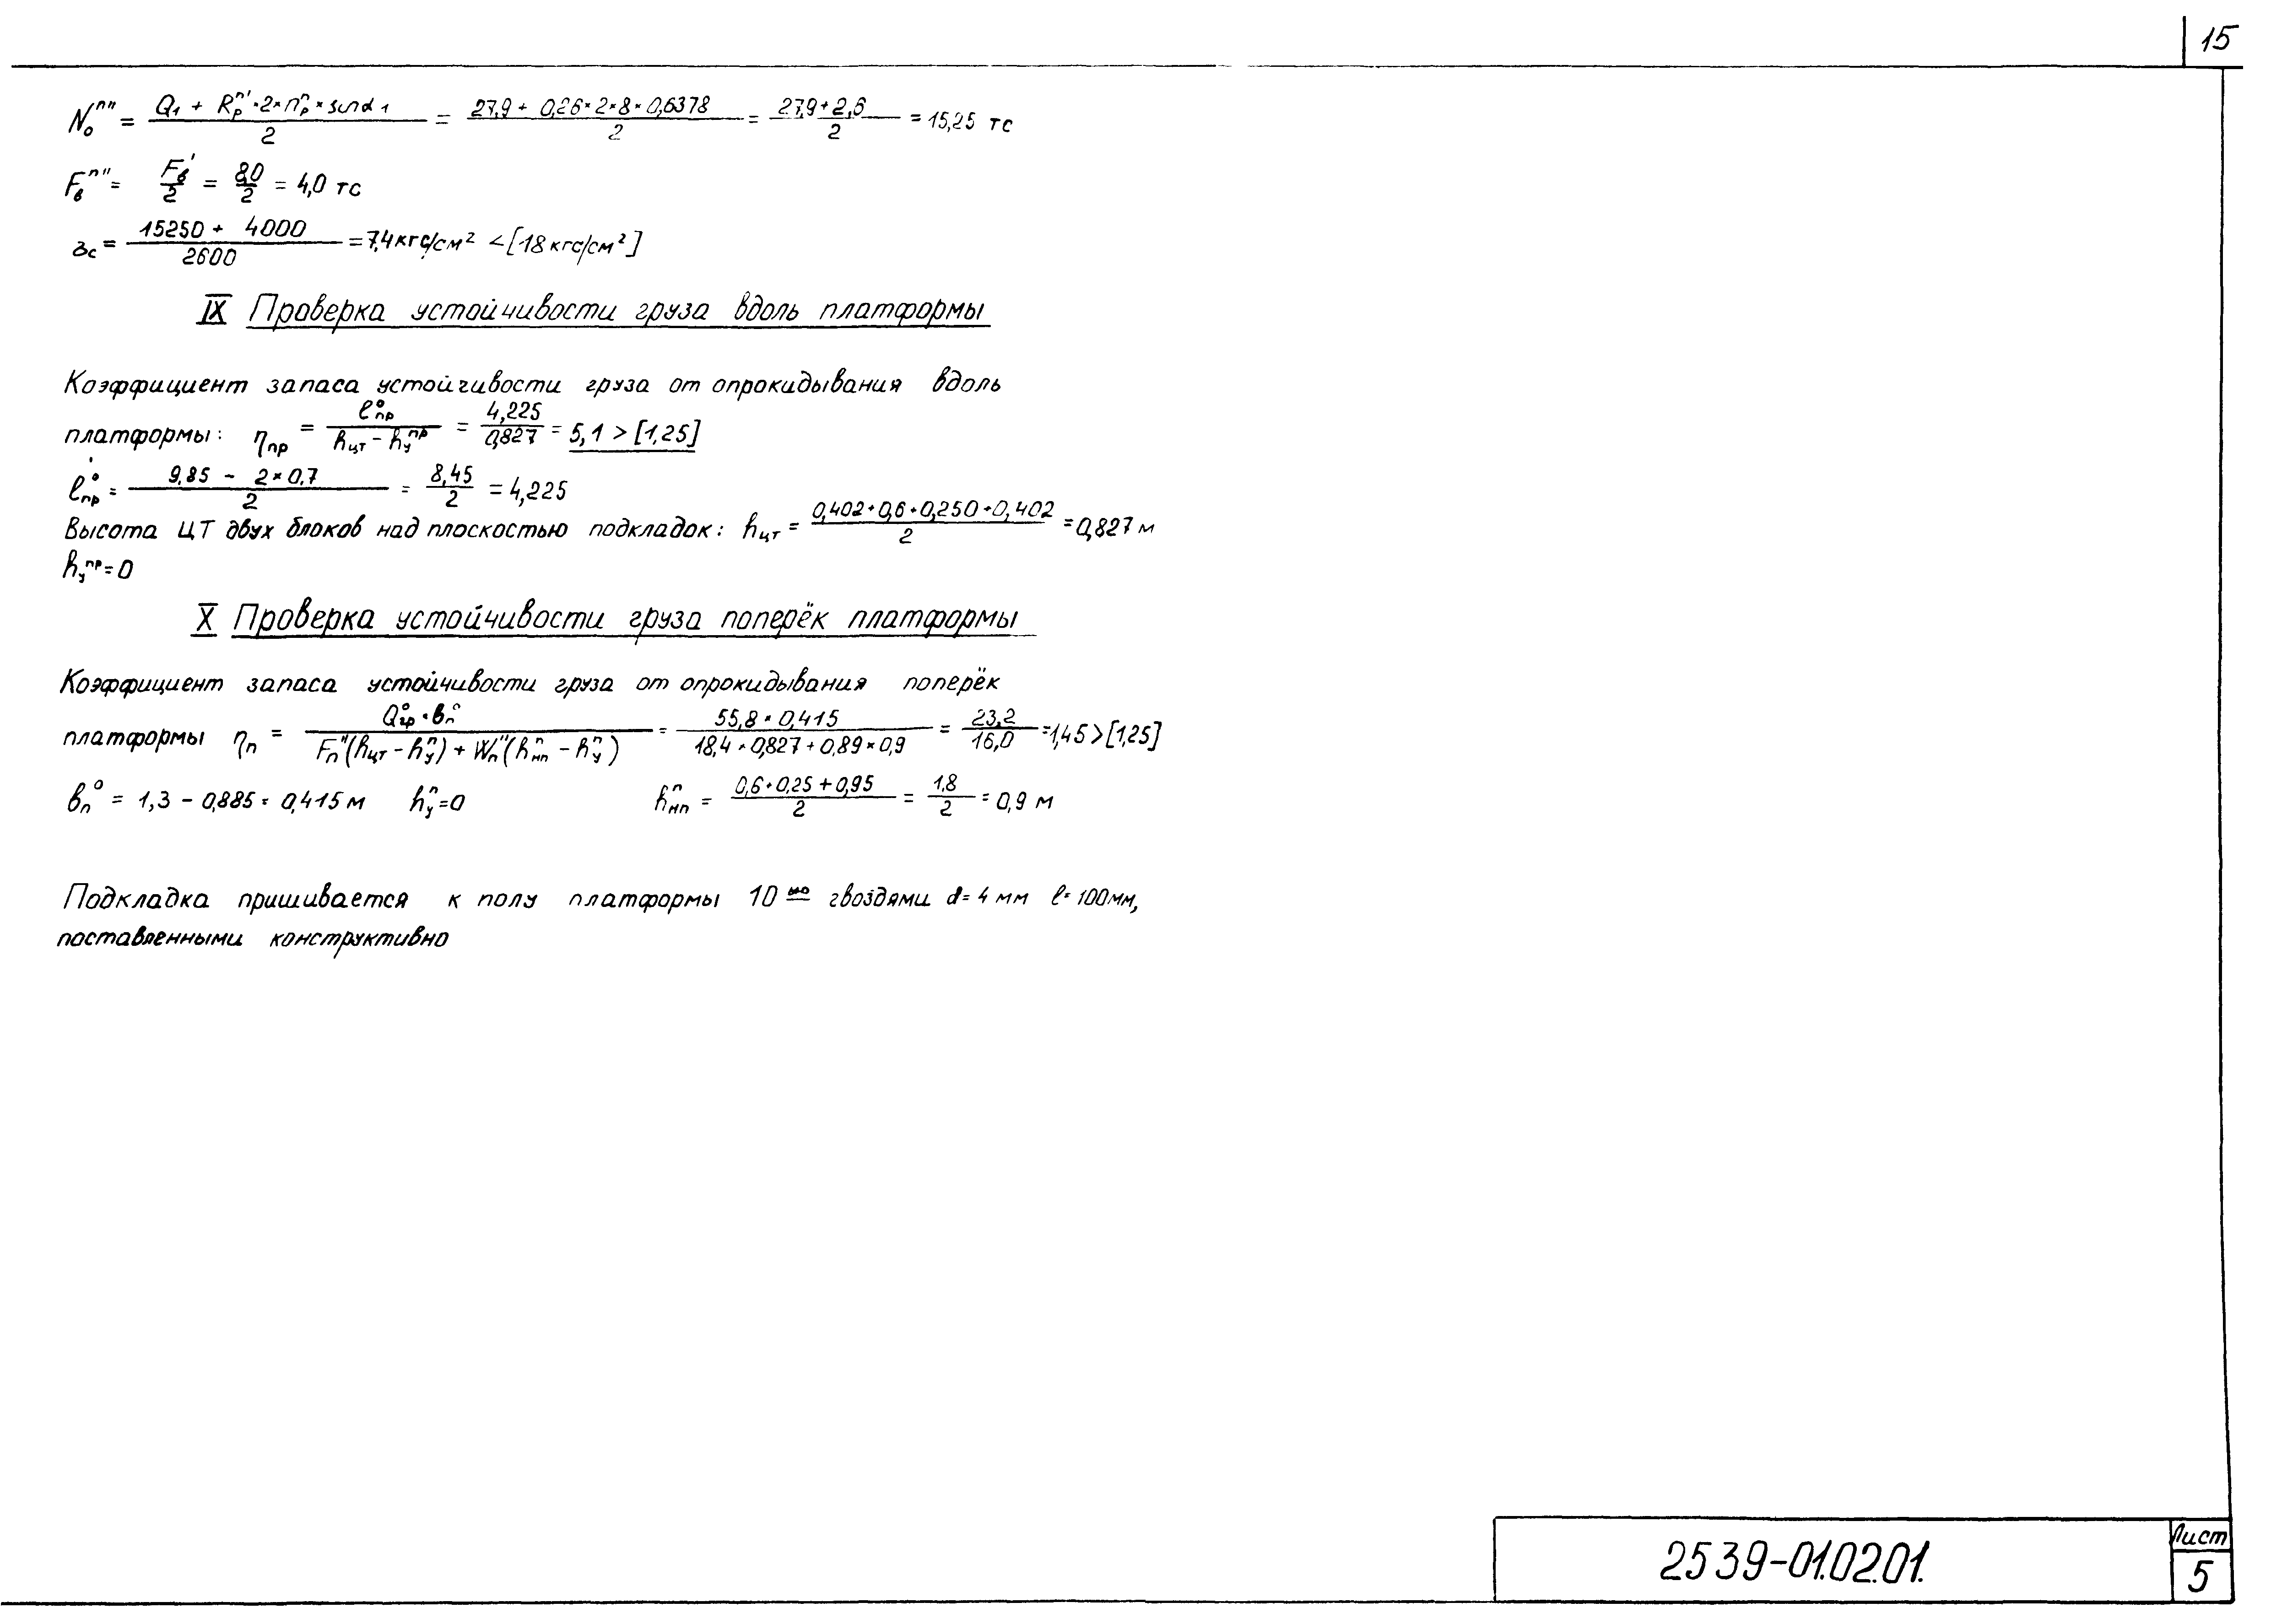 15
N₀ᵖ" = (Q₁ + Rₚⁿ' × 2 × nₚⁿ × sin α₁) / 2 = (27,9 + 0,26 × 2 × 8 × 0,6378) / 2 = (27,9 + 2,6) / 2 = 15,25 тс
Fвⁿ" = Fв' / 2 = 8,0 / 2 = 4,0 тс
σс = (15250 + 4000) / 2600 = 7,4 кгс/см² < [18 кгс/см²]
IX Проверка устойчивости груза вдоль платформы
Коэффициент запаса устойчивости груза от опрокидывания вдоль
платформы: ηпр = l⁰пр / (hцт - hуᵖʳ) = 4,225 / 0,827 = 5,1 > [1,25]
l⁰пр = (9,85 - 2 × 0,7) / 2 = 8,45 / 2 = 4,225
Высота ЦТ двух блоков над плоскостью подкладок: hцт = (0,402 + 0,6 + 0,250 + 0,402) / 2 = 0,827 м
hу пр = 0
X Проверка устойчивости груза поперёк платформы
Коэффициент запаса устойчивости груза от опрокидывания поперёк
платформы ηп = Q⁰гр × bп⁰ / (Fп"(hцт - hуⁿ) + Wп"(hⁿнп - hуⁿ)) = 55,8 × 0,415 / (18,4 × 0,827 + 0,89 × 0,9) = 23,2 / 16,0 = 1,45 > [1,25]
bп⁰ = 1,3 - 0,885 = 0,415 м hуⁿ = 0 hⁿнп = (0,6 + 0,25 + 0,95) / 2 = 1,8 / 2 = 0,9 м
Подкладка пришивается к полу платформы 10ью гвоздями d = 4 мм l = 100 мм,
поставленными конструктивно
2539-01.02.01.
Лист
5